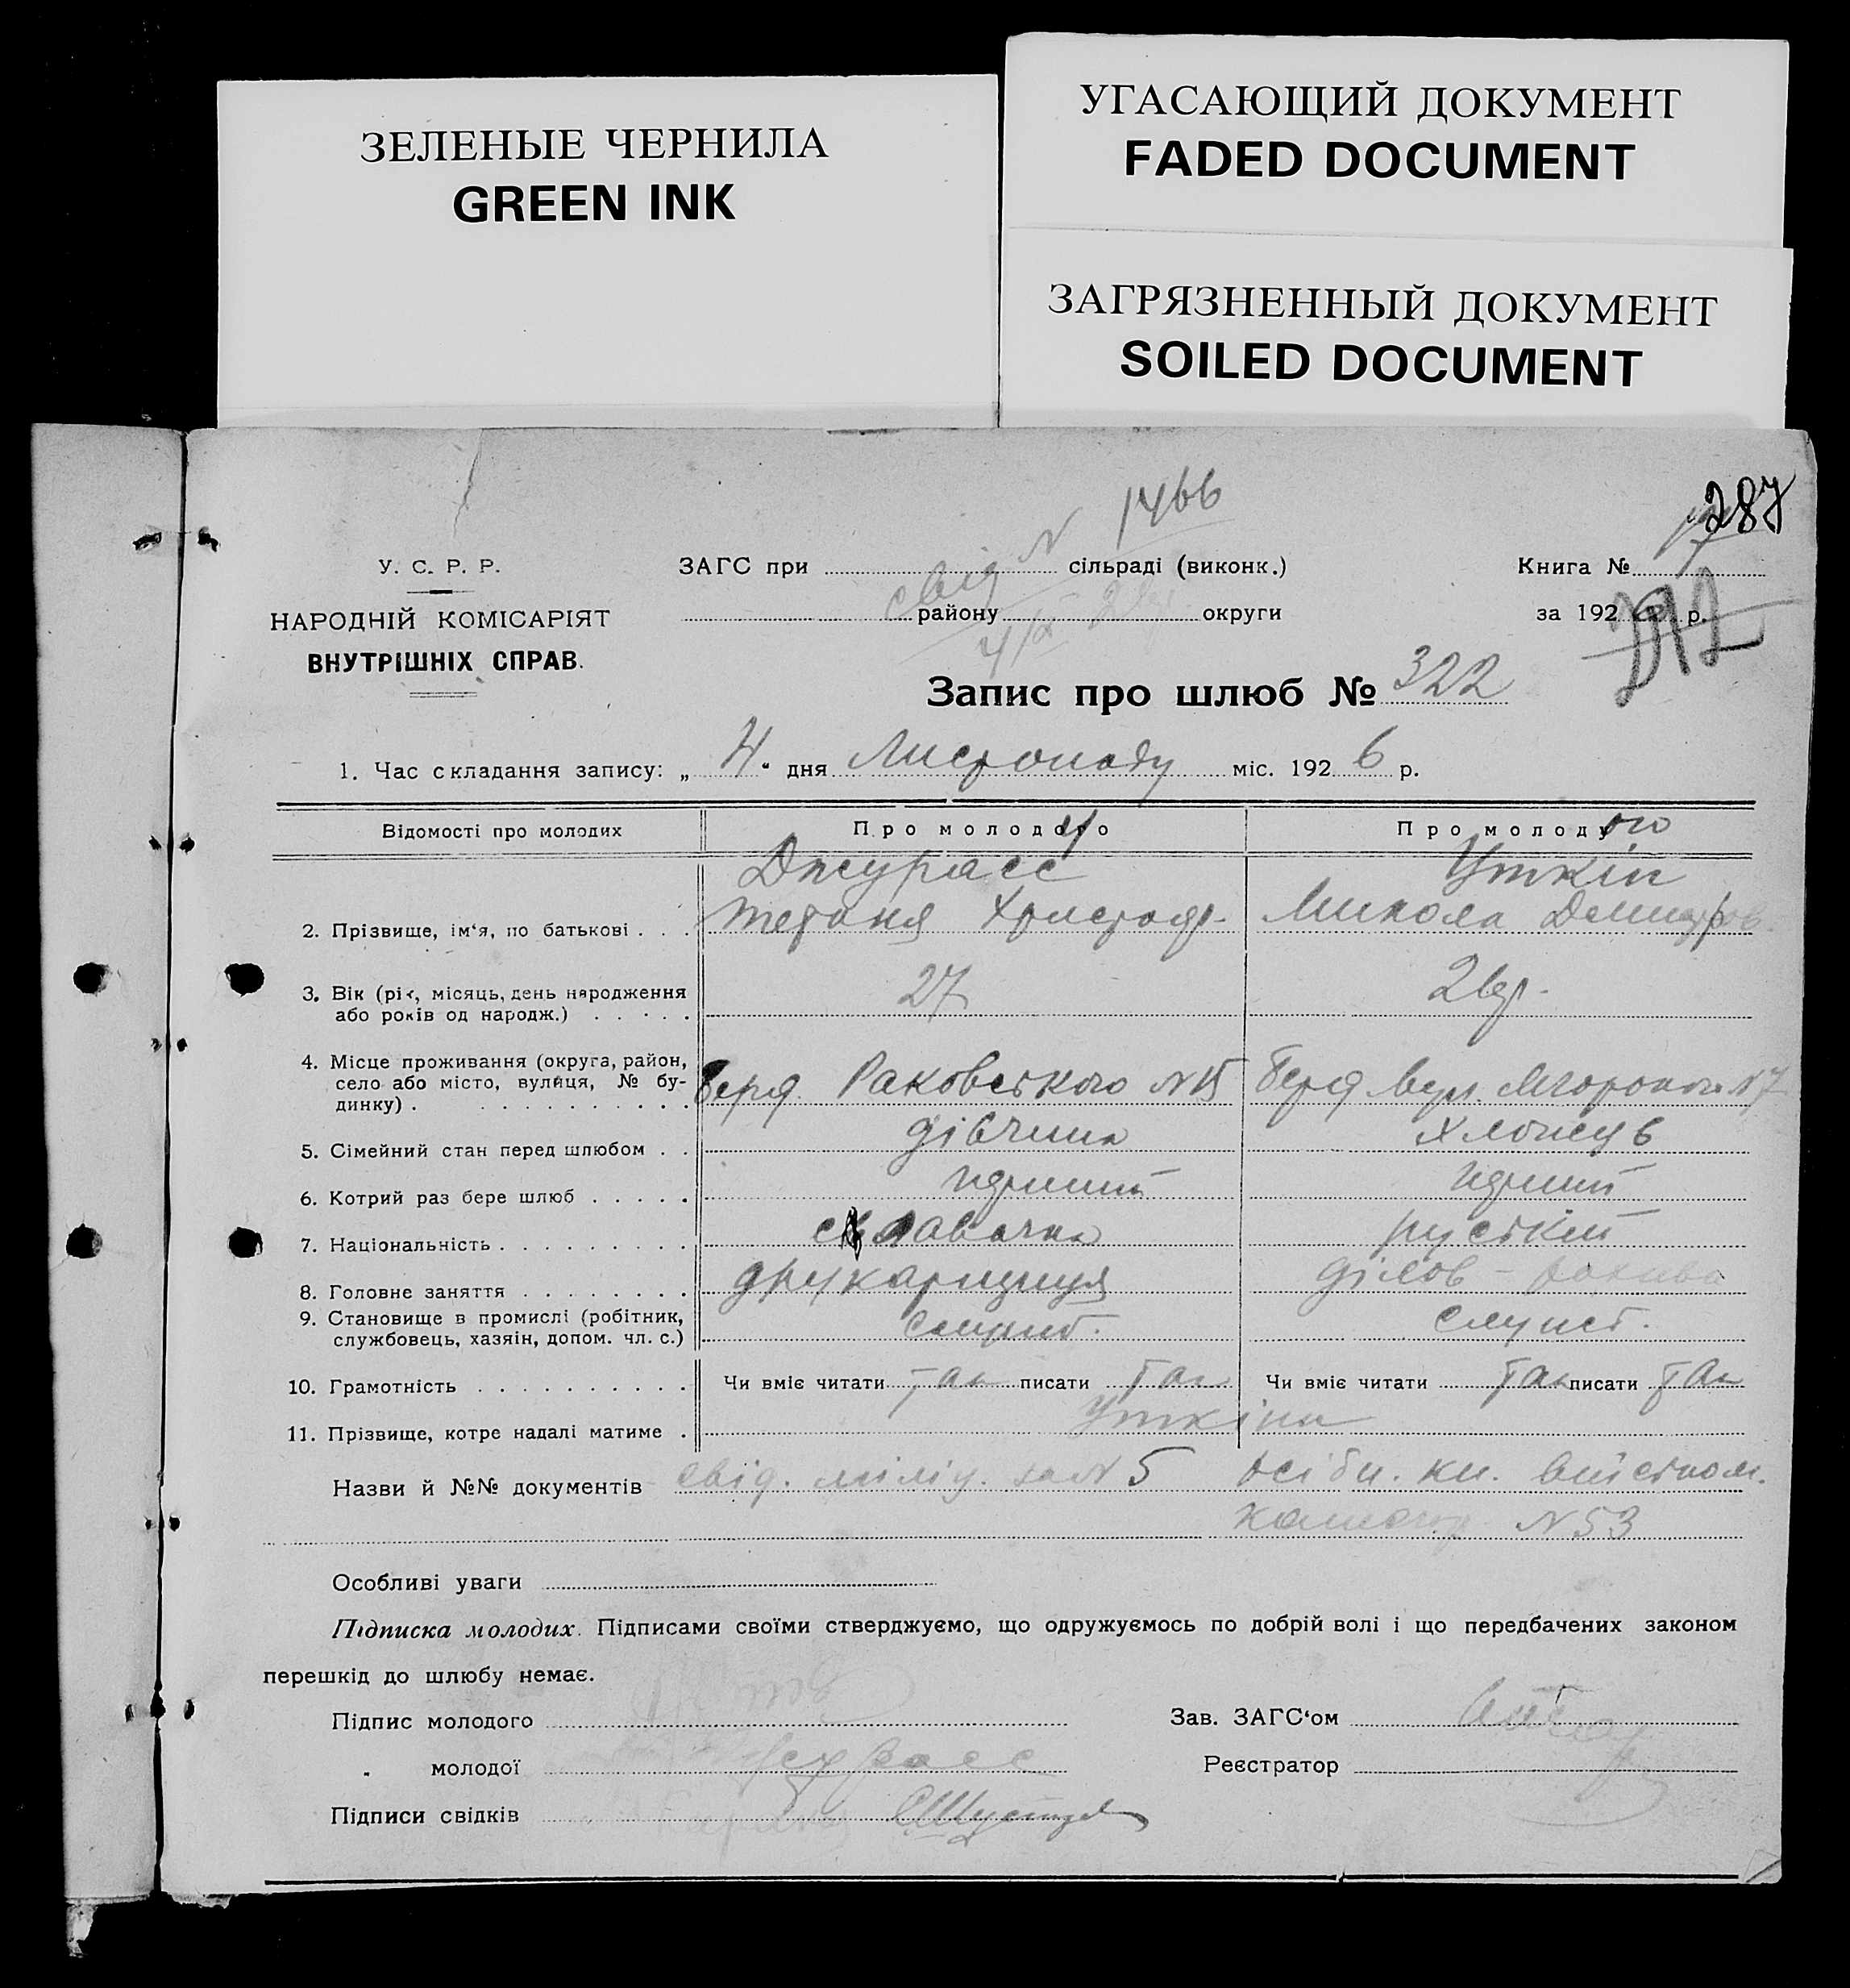 ЗЕЛЕНЫЕ ЧЕРНИЛА
GREEN INK
УГАСАЮЩИЙ ДОКУМЕНТ
FADED DOCUMENT
ЗАГРЯЗНЕННЫЙ ДОКУМЕНТ
SOILED DOCUMENT
N 1466
287
У. С. Р. Р.
НАРОДНІЙ КОМІСАРІЯТ
ВНУТРІШНІХ СПРАВ.
ЗАГС при свід сільраді (виконк.)
району округи
Книга №
за 1926 р.
Запис про шлюб № 322
1. Час складання запису: „ 4 " дня Листопаду міс. 1926 р.
Відомості про молодих Про молоду Про молодого
Джурасс Уткін
2. Прізвище, ім'я, по батькові . . . Тетяна Христоф. Микола Дмитров.
3. Вік (рік, місяць, день народження 27
або років од народж.) . . . . .
4. Місце проживання (округа, район,
село або місто, вулиця, № бу- Берд. Раковського N 15 Берд вул. N 7
динку) . . . . . . . . . . .
5. Сімейний стан перед шлюбом . . дівчина хлопець
6. Котрий раз бере шлюб . . . . . перший перший
7. Національність . . . . . . . . . руський
8. Головне заняття . . . . . . . . друкарщиця діловод
9. Становище в промислі (робітник,
службовець, хазяїн, допом. чл. с.) служб. служб.
10. Грамотність . . . . . . . . . . Чи вміє читати так писати так Чи вміє читати так писати так
11. Прізвище, котре надалі матиме . Уткіни
Назви й №№ документів свід. міліц. за N 5 осібн. кн.
N 53
Особливі уваги
Підписка молодих. Підписами своїми стверджуємо, що одружуємось по добрій волі і що передбачених законом
перешкід до шлюбу немає.
Підпис молодого Зав. ЗАГС'ом
„ молодої Джурасс Реєстратор
Підписи свідків